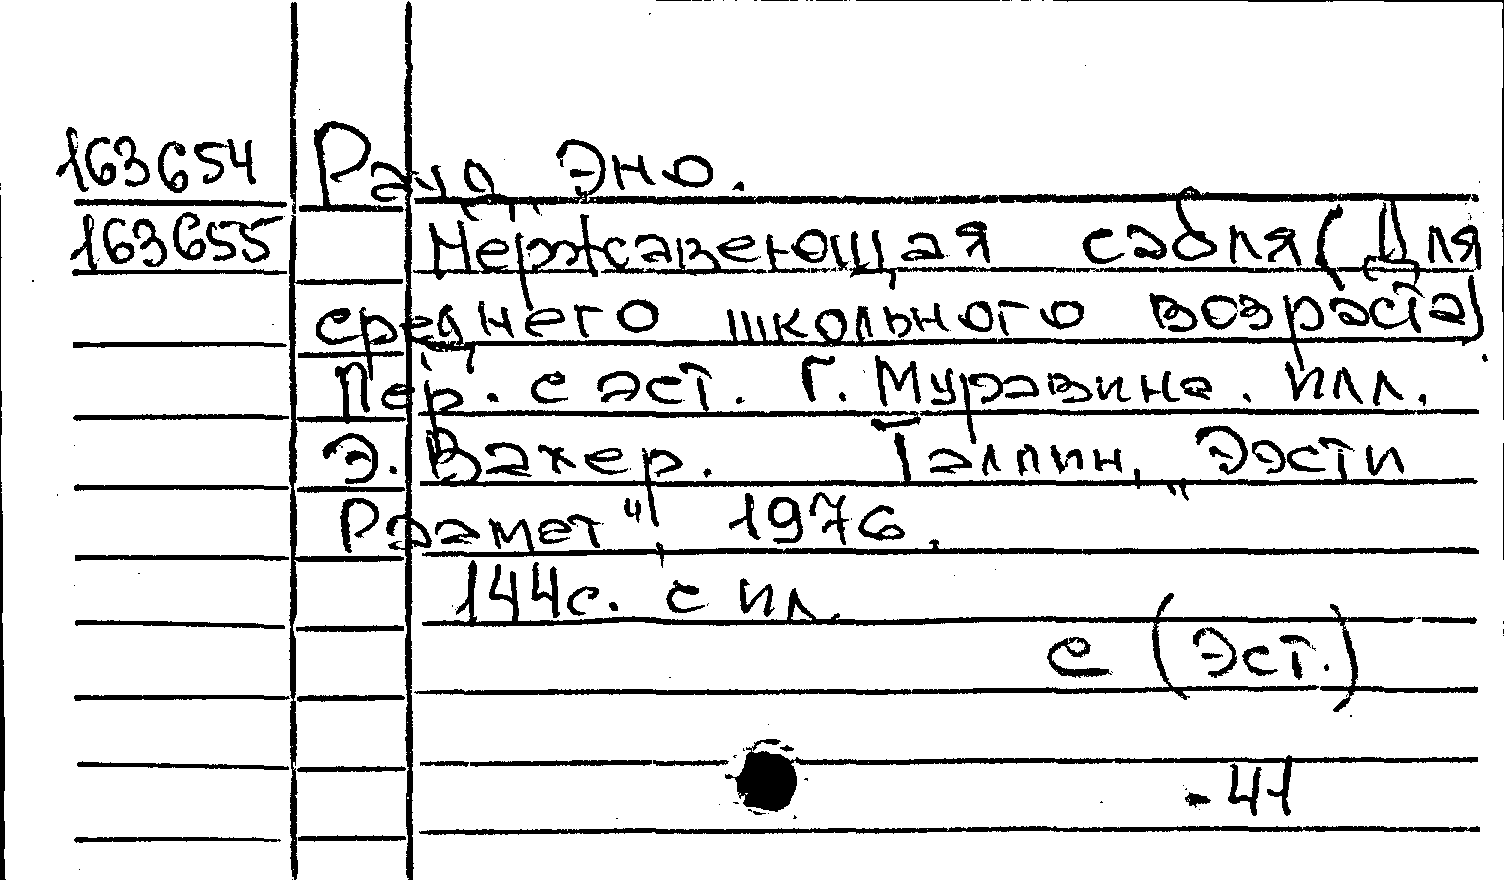 163654 Рауд, Эно.
163655 Нержавеющая сабля (Для
среднего школьного возраста)
Пер. с эст. Г. Муравина. Илл.
Э. Вахер. Таллин, „Ээсти
Раамет", 1976.
144с. с ил.
С (Эст.)
-41